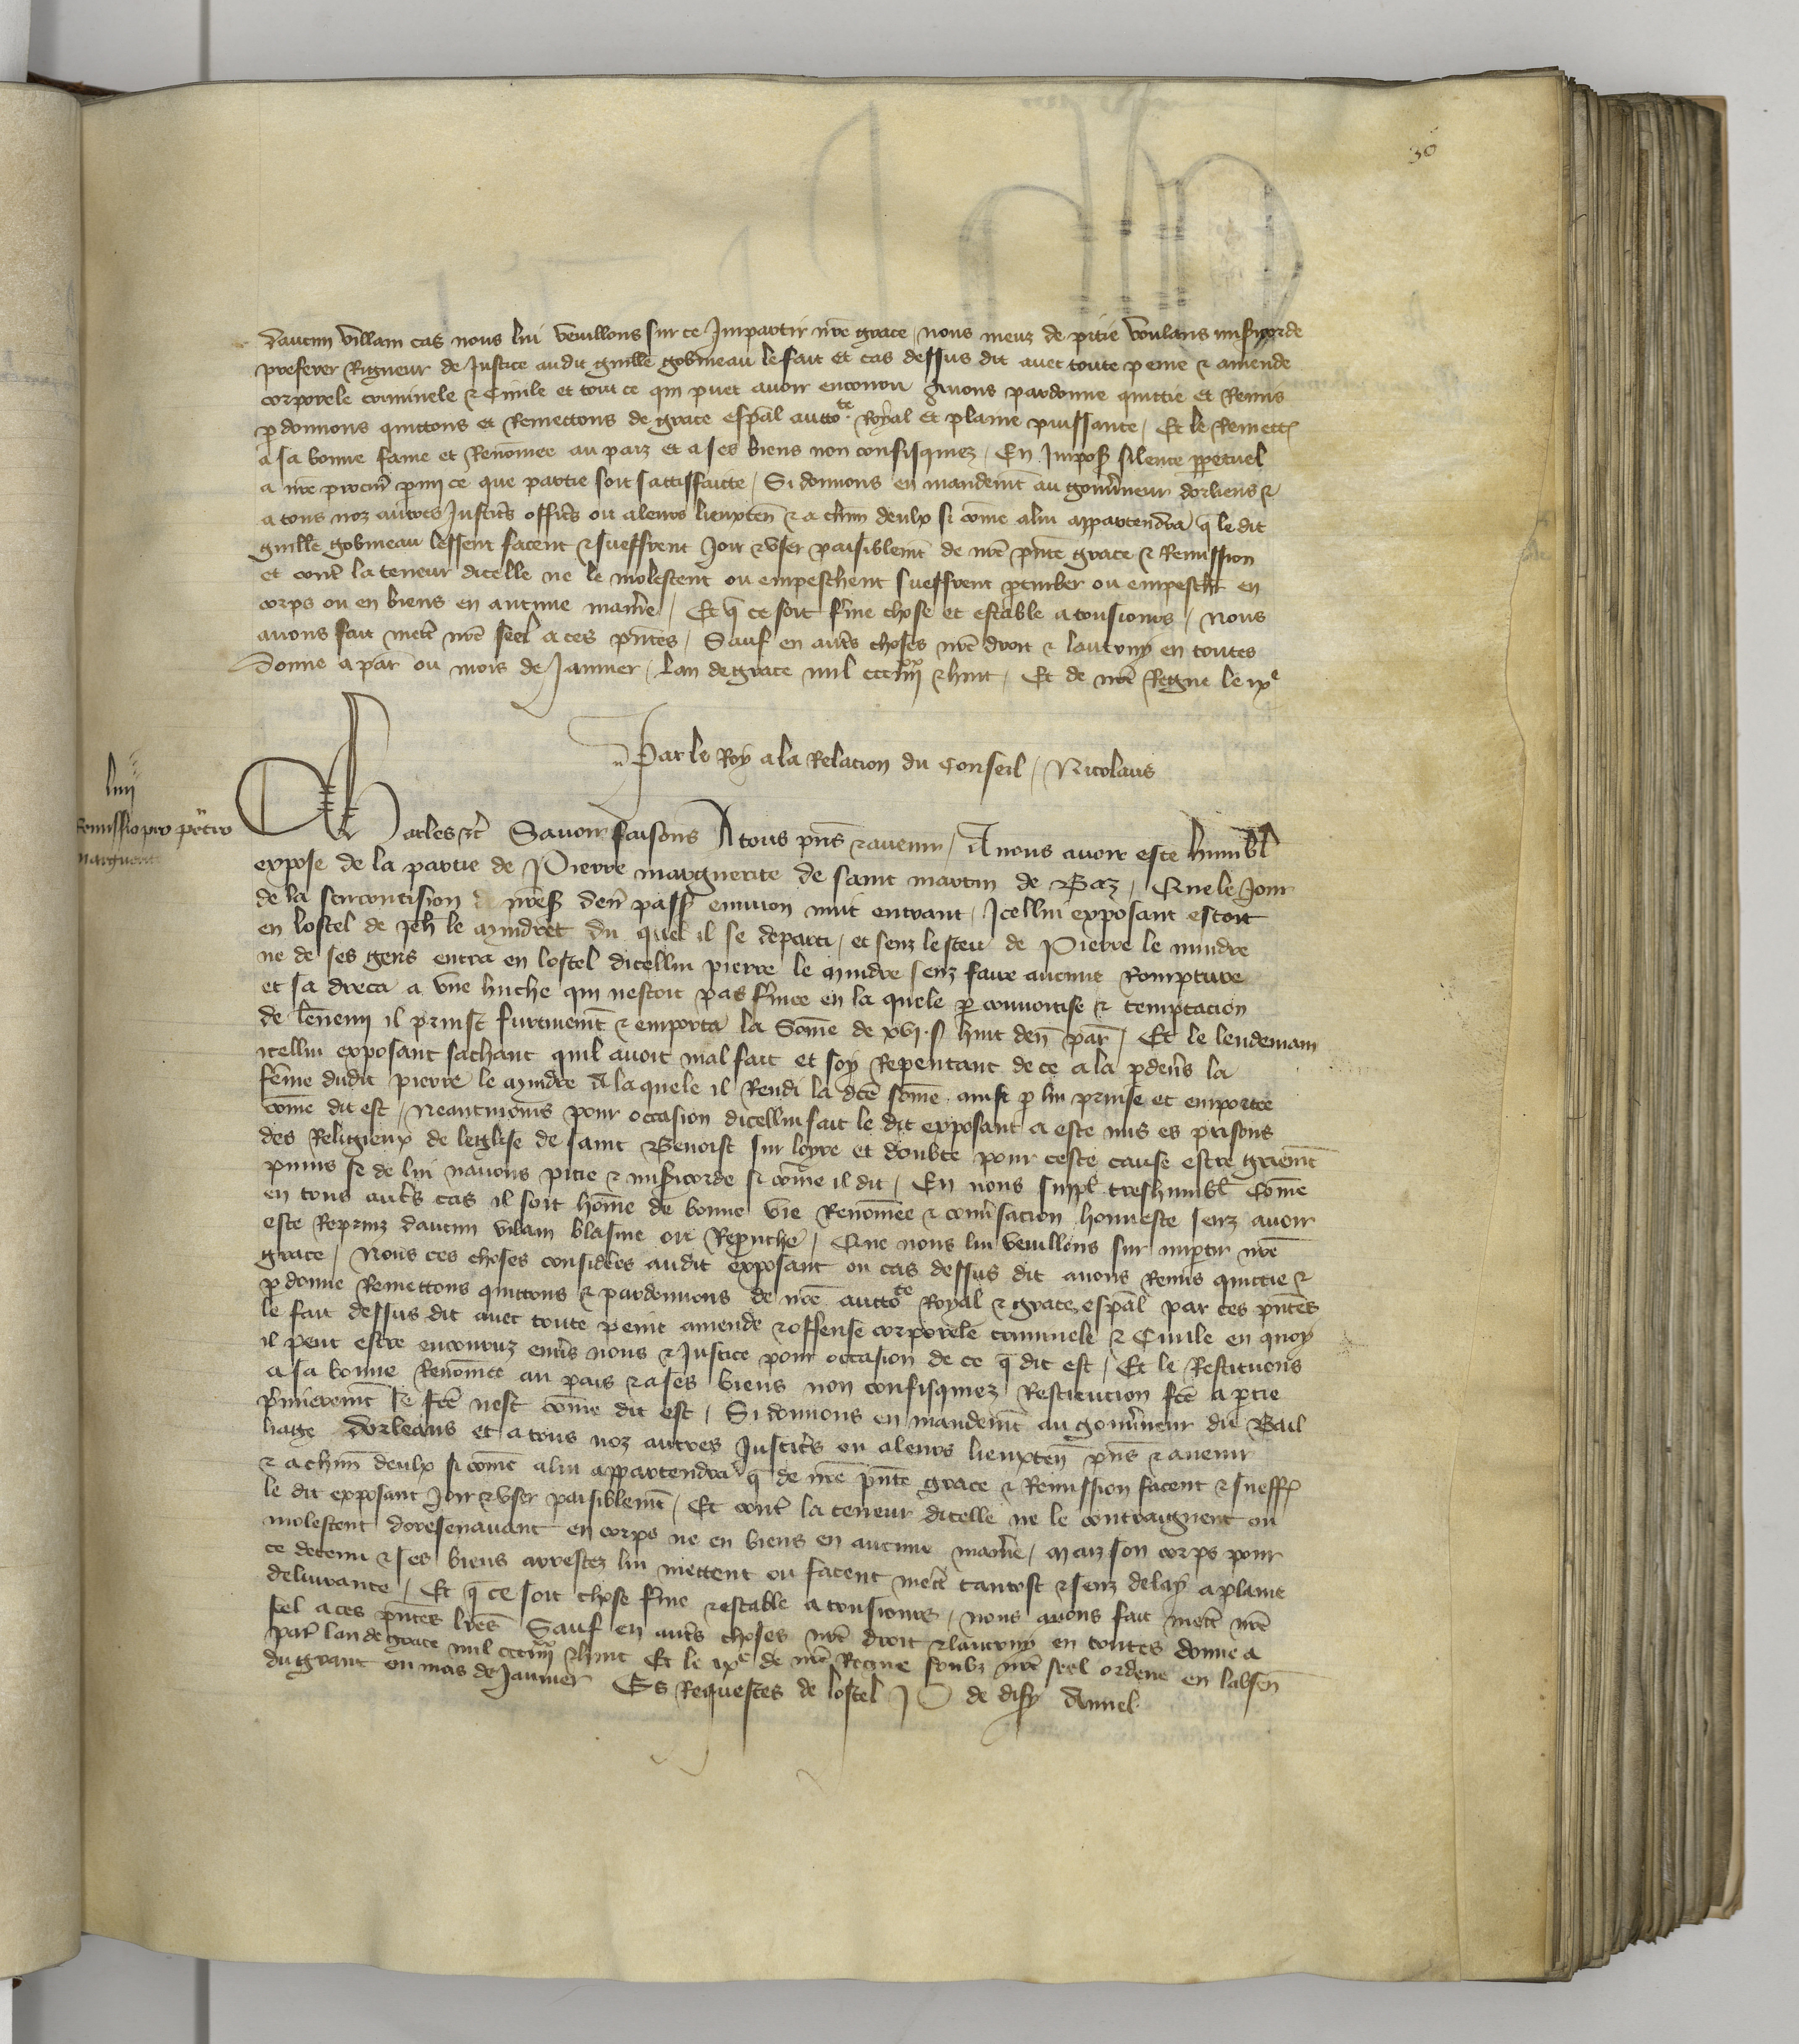 30
daucun villain cas nous lui veuillons sur ce Impartir nr̄e grace / nous meuz de pitie voulans mis̄icorde
preferer Rigueur de Justice audit guille gobineau le fait et cas dessus dit avec toute peine & amende
corporele criminele & Civile et tout ce qui puet avoir encouru Avons pardonne quittie et Remis
p̄donnons quittons et Remettons de grace esp̄al auttote Royal et plaine puissance / Et le Remett̄
a sa bonne fame et Renom̄ee au paiz et a ses biens non confisquiez / En Impos̄ silence pp̄etuel
a nr̄e procur̄ p̄mi ce que partie soit sattiffaicte / Si donnons en mandem̄t au gouv̄neur dorliens &
a tous noz autres Justic̄s offic̄s ou a leurs lieuxten̄ & a chūn deulx si com̄e a lui appartendra q̄ le dit
guille gobineau lessent facent & sueffrent Joir & user paisiblem̄t de nr̄e p̄nte grace & Remission
et contr̄ la teneur dicelle ne le molestent ou empeschent sueffrent p̄turber ou empesch̄ en
corps ou en biens en aucune manr̄e / Et q̄ ce soit f̄me chose et estable a tousiours / Nous
avons fait mettr̄ nr̄e seel a ces p̄ntes / Sauf en autr̄s choses nr̄e droit & lautruy en toutes
Donne a par̄ ou mois de Janvier / Lan de grace mil ccciiiixx & huit / Et de nr̄e Regne le ixe
Par le Roy a la Relacion du Conseil / Nicolaus
liiii
Remissio pro petro
marguerite
Charles &c̄ Savoir faisons A tous p̄ns & avenir / A nous avoir este humbl̄
expose de la partie de Pierre marguerite de saint martin de Baz / Que le Jour
de la circoncision nr̄e s̄ den̄ pass̄ environ nuit entrant / Icellui exposant estoit
en lostel de Jeh̄ le mindre du quel il se departi / et senz le sceu de Pierre le mindre
ne de ses gens entra en lostel dicellui pierre le mindre senz faire aucune Rompture
et sa dreca a une huche qui nestoit pas f̄mee en la quele p̄ convoitise & temptacion
de lennemi il prinst furtivem̄t & emporta la Som̄e de xvi s̄ huit den̄ par̄ / Et le lendemain
icellui exposant sachant quil avoit mal fait et soy Repentant de ce a la p̄don̄s la
fem̄e dudit pierre le mindre A laquele il Rendi la dc̄e som̄e ainsi p̄ lui prinse et emportee
com̄e dit est / Neantmoins pour occasion dicellui fait le dit exposant a este mis es prisons
des Religieux de leglise de saint Benoist sur loyre et doubte pour ceste cause estre griefm̄t
puniz se de lui navons pitie & mis̄icorde si com̄e il dit / En nous suppl̄ treshumbl̄ Com̄e
en tous autr̄s cas il soit hom̄e de bonne vie Renom̄ee & conv̄sacion honneste senz avoir
este Reprinz daucun vilain blasme ou Reprouche / Que nous lui veuillons sur imp̄tir nr̄e
grace / Nous ces choses consider̄es audit exposant ou cas dessus dit avons Remis quittie &
p̄donne Remettons quittons & pardonnons de nr̄e auttote Royal & grace esp̄al par ces p̄ntes
le fait dessus dit avec toute peine amende & offense corporele criminele & Civile en quoy
il peut estre encouruz env̄s nous & Justice pour occasion de ce q̄ dit est / Et le Restituons
a sa bonne Renom̄ee au pais & a ses biens non confisquiez Restitucion fc̄e a p̄tie
p̄mierem̄t se fc̄e nest com̄e dit est / Si donnons en mandem̄t au gouv̄neur du Bail
liage Dorleans et a tous noz autres Justic̄s ou a leurs lieuxten̄ p̄ns & avenir
& a chūn deulx si com̄e a lui appartendra q̄ de nr̄e p̄nte grace & Remission facent & sueff̄
le dit exposant Joir & user paisiblem̄t / Et contr̄ la teneur dicelle ne le contraignent ou
molestent doresenavant en corps ne en biens en aucune manr̄e / Maiz son corps pour
ce detenu & ses biens arrestez lui mettent ou facent mettr̄ tantost & senz delay a plaine
delivrance / Et q̄ ce soit chose f̄me & estable a tousiours / nous avons fait mettr̄ nr̄e
seel a ces p̄ntes lr̄es Sauf en autr̄s choses nr̄e droit & lautruy en toutes donne a
par̄ lan de grace mil ccciiiixx & huit Et le ixe de nr̄e Regne soubz nr̄e seel ordene en labsen̄
du grant ou mois de Janvier Es Requestes de lostel J D de disy Annel